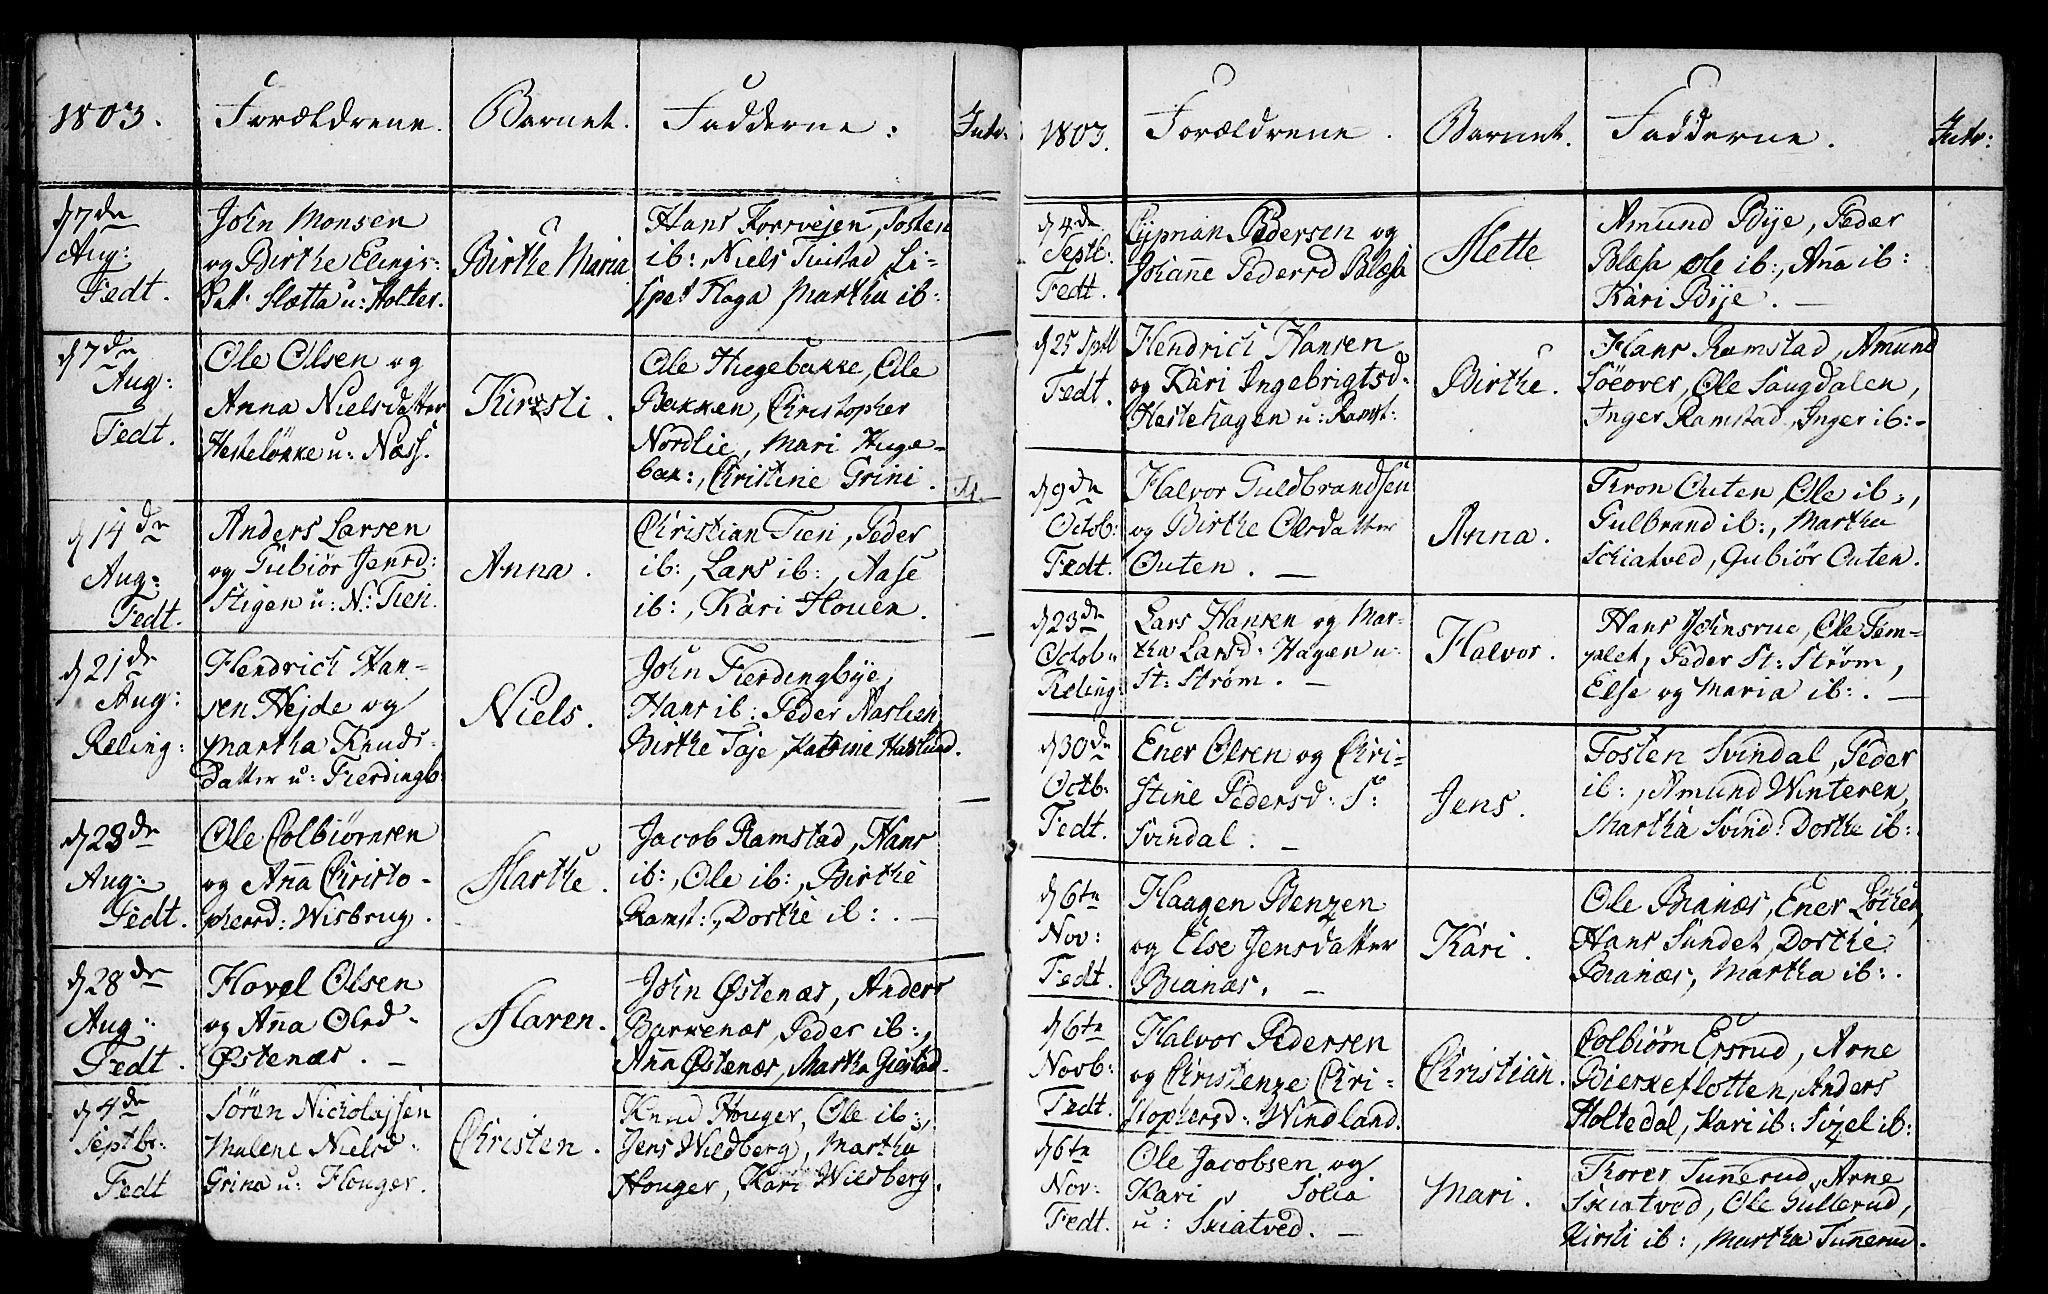 1803.
Forældrene.
Barnet.
Fadderne:
Intr:
d 7de
Aug:
Fedt.
John Monsen
og Birthe Elings-
Datt: Slætta u: Holter.
Birthe Maria
Hans Korrvejen, Tosten
ib:, Niels Tuistad Li-
spet Haga Martha ib:
d 7de
Aug:
Fedt.
Ole Olsen og
Anna Nielsdatter
Hesteløkke u: Næss.
Kirsti.
Ole Hugebakke, Ole
Bakken, Christopher
Nordlie, Mari Huge-
bak:, Christine Grini.
d 14de
Aug:
Fedt.
Anders Larsen
og Gubiør Jensd:
Stigen u: N: Fieri.
Anna.
Christian Fieri, Peder
ib:, Lars ib:, Aase
ib:, Kari Houen.
d 21de
Aug:
Reling:
Hendrich Han-
sen Hejde og
Martha Knuds-
datter u: Fierdingb:
Niels.
John Fierdingbye,
Hans ib: Peder Naslien,
Birthe Taje, Katrine Haslund.
d 28de
Aug:
Fedt.
Ole Colbiørnsen
og Aña Christo-
phersd: Wisbrug.
Marthe.
Jacob Ramstad, Hans
ib:, Ole ib:, Birthe
Ramst:, Dorthe ib:. —
d 28de
Aug:
Fedt.
Hovel Olsen
og Aña Olsd-
Østenæs. —
Maren.
John Østenæs, Anders
Bakkenæs, Peder ib:,
Aña Østenæs, Martha Giestad.
d 4de
Septbr:
Fedt
Søren Nickolajsen
Malene Nielsd-
Grina u: Houger.
Christen.
Knud Houger, Ole ib:,
Jens Wildberg, Martha
Houger, Kari Wildberg.
1803.
Forældrene.
Barnet.
Fadderne.
Intr:
d 4de
Septb:
Fedt.
Cyprian Pedersen og
Johañe Pedersd Blæsa
Mette
Amund Bye, Peder
Blæsa, Ole ib:, Aña ib:
Kari Bye. —
d 25 Sptb
Fedt.
Hendrich Hansen
og Kari Ingebrigtsd-
Hestehagen u: Ramst:
Birthe.
Hans Ramstad, Amund
Søeover, Ole Saugdalen,
Inger Ramstad, Inger ib:-
d 9de
Octob:
Fedt.
Halvor Guldbrandsen
og Birthe Olsdatter
Outen. —
Anna.
Tron Outen, Ole ib:,
Gulbrand ib:, Martha
Schiatved, Gubiør Outen.
d 23de
Octob:
Reling:
Lars Hansen og Mar-
tha Larsd: Hagen u:
St: Strøm. —
Halvor.
Hans Johnsrue, Ole Tem-
plet, Peder St: Strøm,
Else og Maria ib:. —
d 30de
Octb:
Fedt.
Ener Olsen og Chri-
stine Pedersd: S:
Svindal. —
Jens.
Tosten Svindal, Peder
ib:, Amund Winteren,
Martha Svind: Dorthe ib:
d 6te
Nov:
Fedt.
Haagen Benzen
og Else Jensdatter
Bianæs. —
Kari.
Ole Bianæs, Ener Løcken,
Hans Sundet, Dorthe
Bianæs, Martha ib:.
d 6te
Novb:
Fedt.
Halvor Pedersen
og Christenze Chri-
stophersd: Windland.
Christian.
Colbiørn Ersrud, Arne
Bierkeflotten, Anders
Holtedal, Kari ib: Sizel ib:
d 6te
Nov:
Fedt.
Ole Jacobsen og
Kari Solia
u: Skiatved. —
Mari.
Thorer Tuñerud, Arne
Skiatved, Ole Gullerud,
Kirsti ib:, Martha Tuñerud.